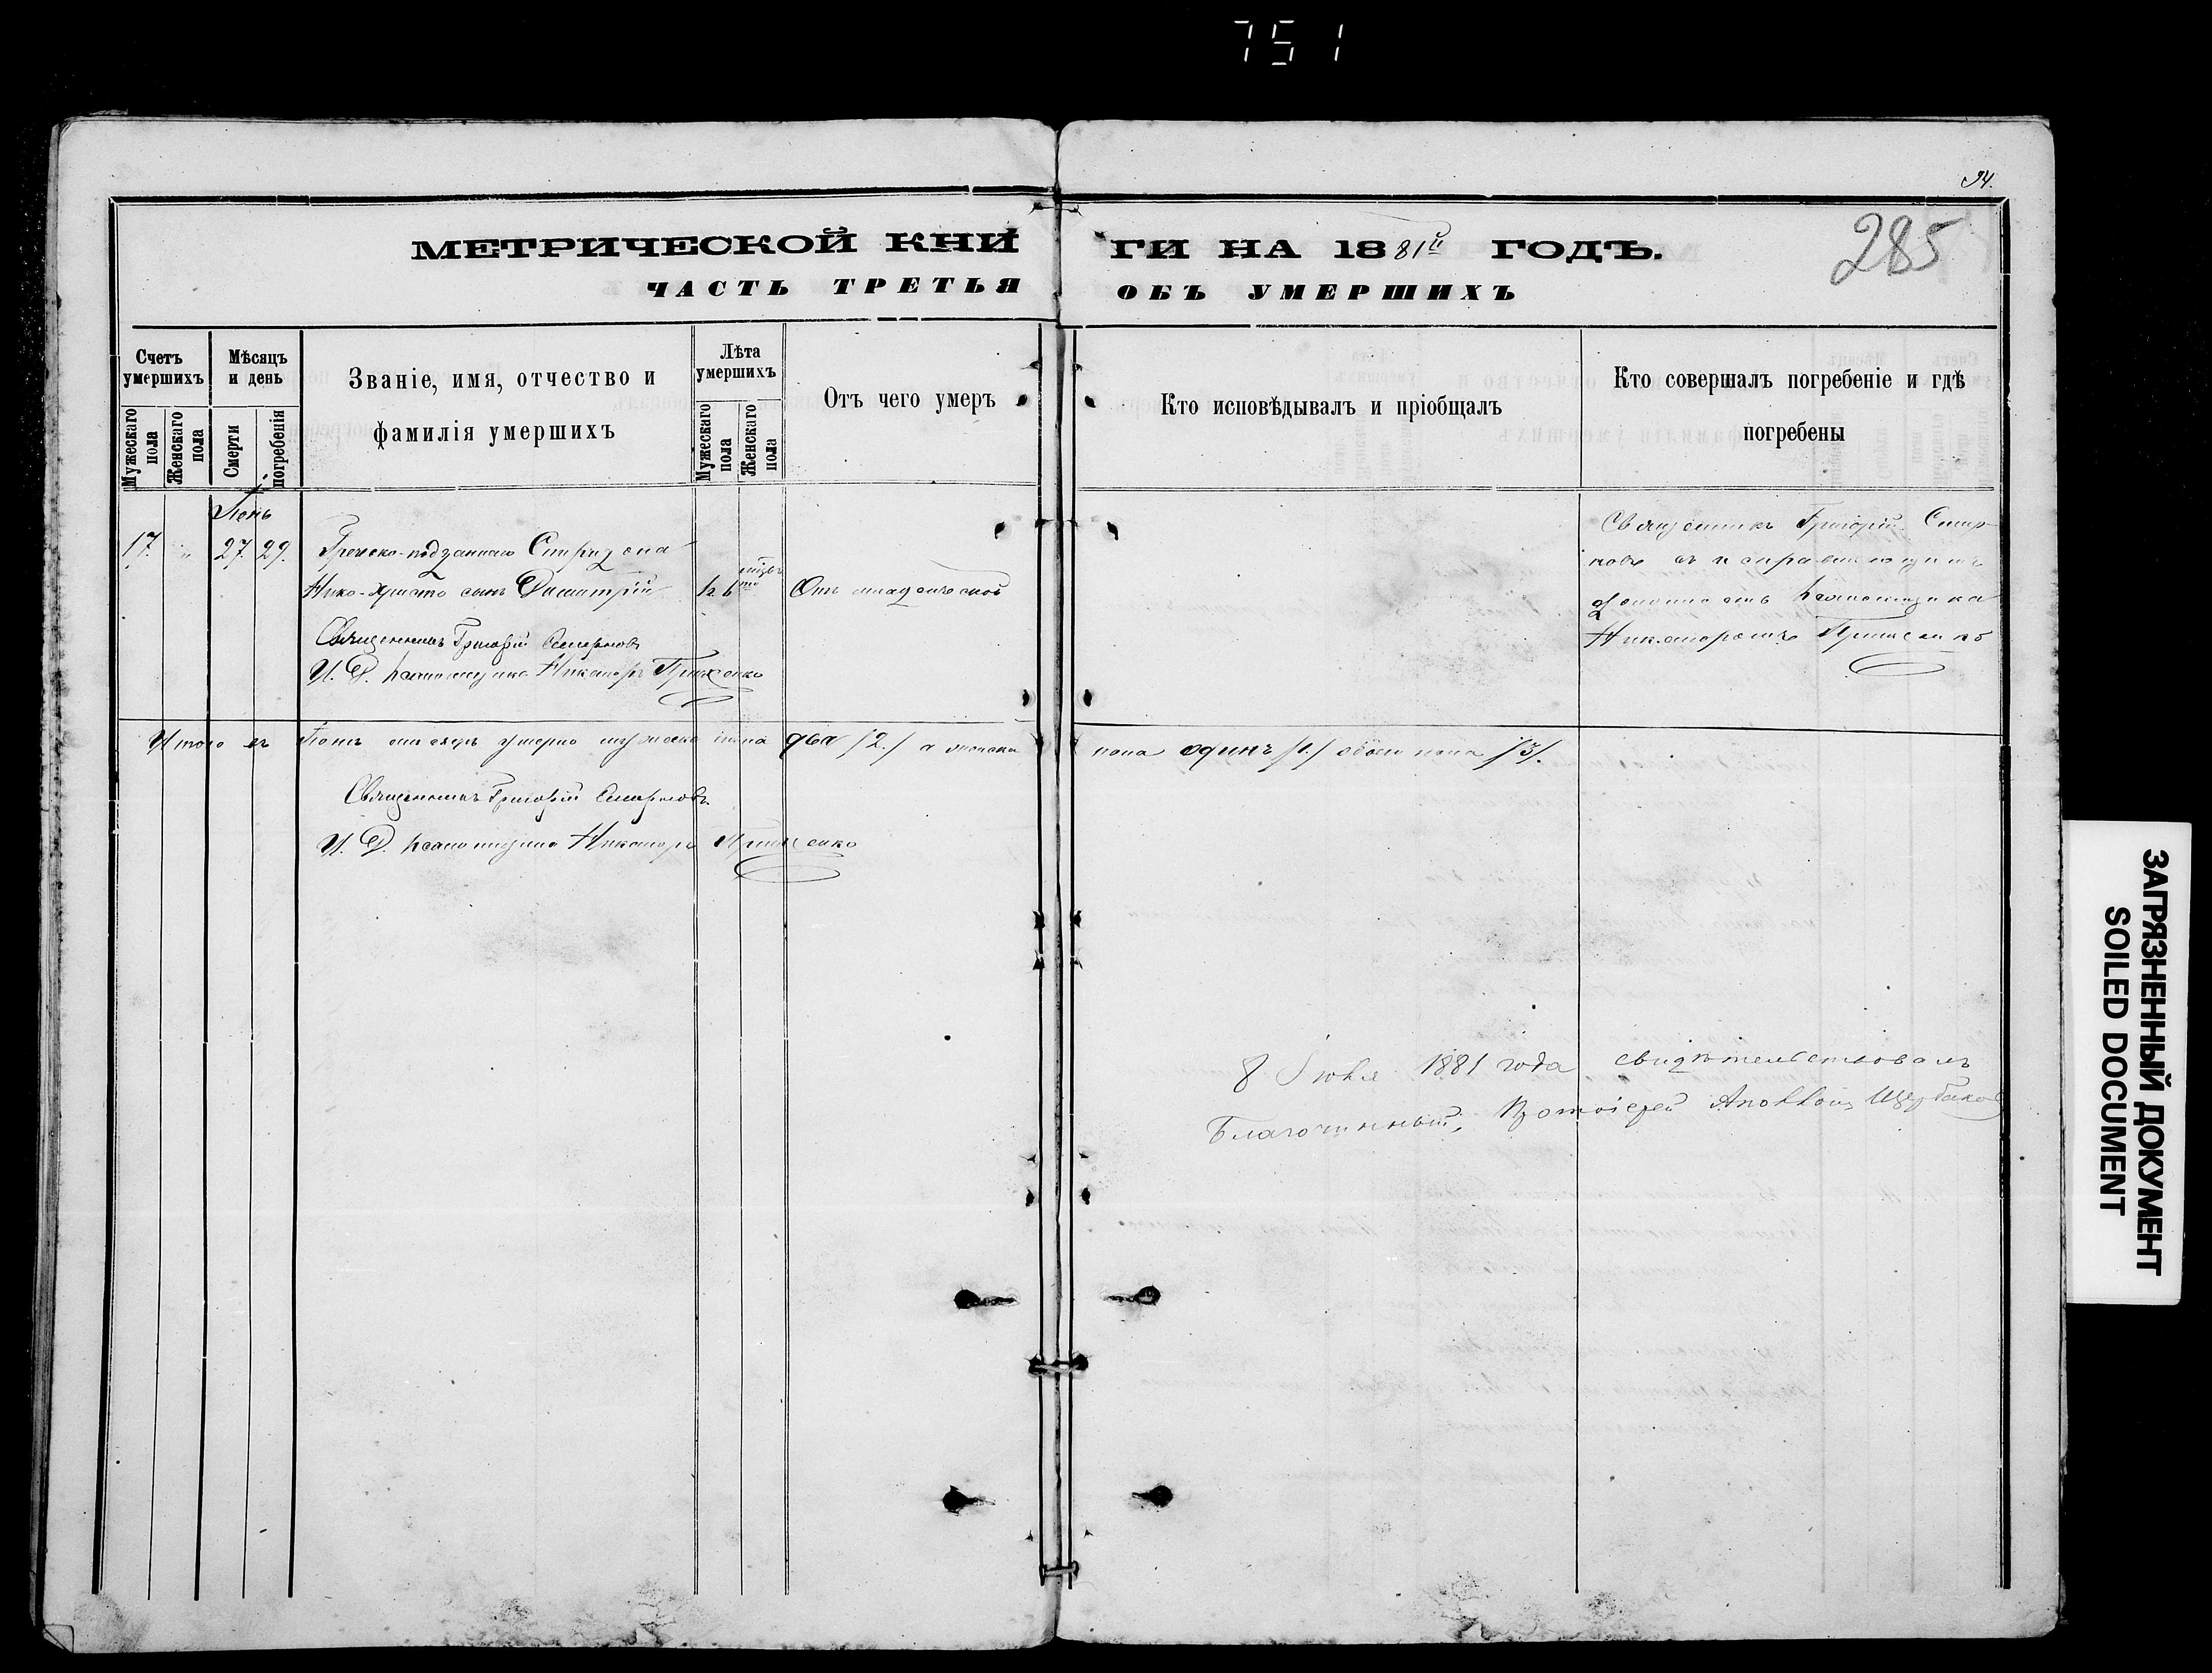 751
94.
285
МЕТРИЧЕСКОЙ КНИ ГИ НА 1881й ГОДЪ.
ЧАСТЬ ТРЕТЬЯ ОБЪ УМЕРШИХЪ
Счетъ умершихъ
Мужескаго пола
Женскаго пола
Мѣсяцъ и день
Смерти
погребенія
Званіе, имя, отчество и
фамилія умершихъ
Лѣта умершихъ
Мужескаго пола
Женскаго пола
Отъ чего умеръ
Кто исповѣдывалъ и пріобщалъ
Кто совершалъ погребеніе и гдѣ
погребены
17. " 27. 29.
Греческо-подданнаго Спиридона
Нико-Христо сынъ Димитрій
Отъ младенческой
Священникъ Григорій Смирновъ
И. Д. псаломщика Никаноръ
Священникъ Григорій Смир-
новъ съ исправляющимъ
должность псаломщика
Никаноромъ
Итого въ мѣсяцѣ умерло мужеска пола два /2./ а женска пола одинъ /1./ обоего пола /3/.
Священникъ Григорій Смирновъ
И. Д. псаломщика Никаноръ
8 Іюля 1881 года свидѣтельствовалъ
Благочинный, Протоіерей Аполлоній Щербаковъ
ЗАГРЯЗНЕННЫЙ ДОКУМЕНТ
SOILED DOCUMENT